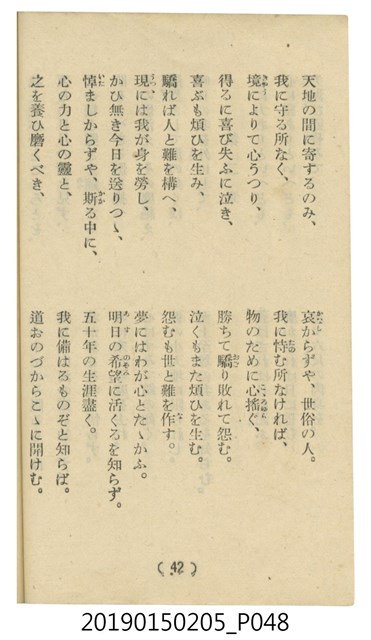 天地の間に寄するのみ、
哀からずや、世俗の人。
我に守る所なく、
我に恃む所なければ、
境によりて心うつり、
物のために心搖ぐ、
得るに喜び失ふに泣き、
勝ちて驕り敗れて怨む。
喜ぶも煩ひを生み、
泣くもまた煩ひを生む。
驕れば人と難を構へ、
怨むも世と難を作す。
現には我が身を勞し、
夢にはわが心とたゝかふ。
かひ無き今日を送りつゝ、
明日の希望に活くるを知らず。
悼ましからずや、斯る中に、
五十年の生涯盡く。
心の力と心の靈と、
我に備はるものぞと知らば。
之を養ひ磨くべき、
道おのづからこゝに開けむ。
(42)
20190150205_P048